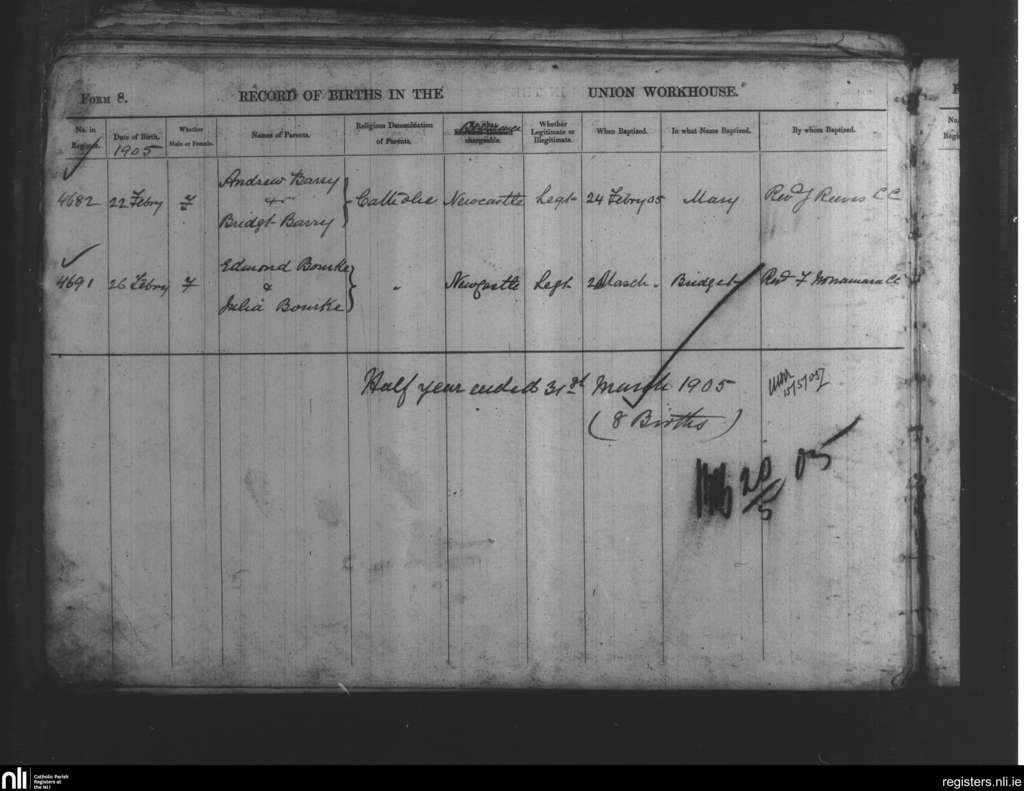 FORM 8. RECORD OF BIRTHS IN THE UNION WORKHOUSE.
No. in Register. Date of Birth. 1905 Whether Male or Female. Names of Parents. Religious Denomination of Parents. chargeable. Whether Legitimate or Illegitimate. When Baptized. In what Name Baptized. By whom Baptized.
4682 22 Febry F Andrew Barry & Bridgt Barry Catholic Newcastle Legt 24 Febry 05 Mary Revd J Reeves CC
4691 26 Febry F Edmond Bourke & Julia Bourke " Newcastle Legt March Bridget Revd F CC
Half year ended 31st March 1905
(8 Births)
15/5/05
20/5 05
nli Catholic Parish Registers at the NLI
registers.nli.ie